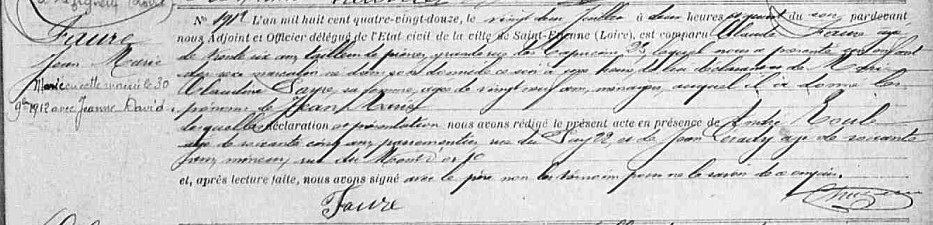 Faure
Jean Marie
Marié en cette mairie le 30
9bre 1912 avec Jeanne David.
L'an mil huit cent quatre-vingt-douze, le vingt deux Juillet à deux heures du soir pardevant
nous Adjoint et Officier délégué de l'Etat civil de la ville de Saint-Etienne (Loire), est comparu Claude Faure âgé
de trente six ans, rue des Capucins 25, lequel nous a présenté un enfant
du sexe masculin né dans son domicile ce soir à une heure de lui déclarant et de Marie
Claudine Sayre, sa femme, âgée de vingt neuf ans, ménagère, auquel il a donné les
prénoms de Jean Marie
desquelles déclaration et présentation nous avons rédigé le présent acte en présence de André
âgé de soixante cinq ans, passementier, rue du 22, et de Jean âgé de soixante
ans, mineur, rue du Mont d'or
et, après lecture faite, nous avons signé avec le père non les témoins pour ne le savoir de ce enquis.
Faure